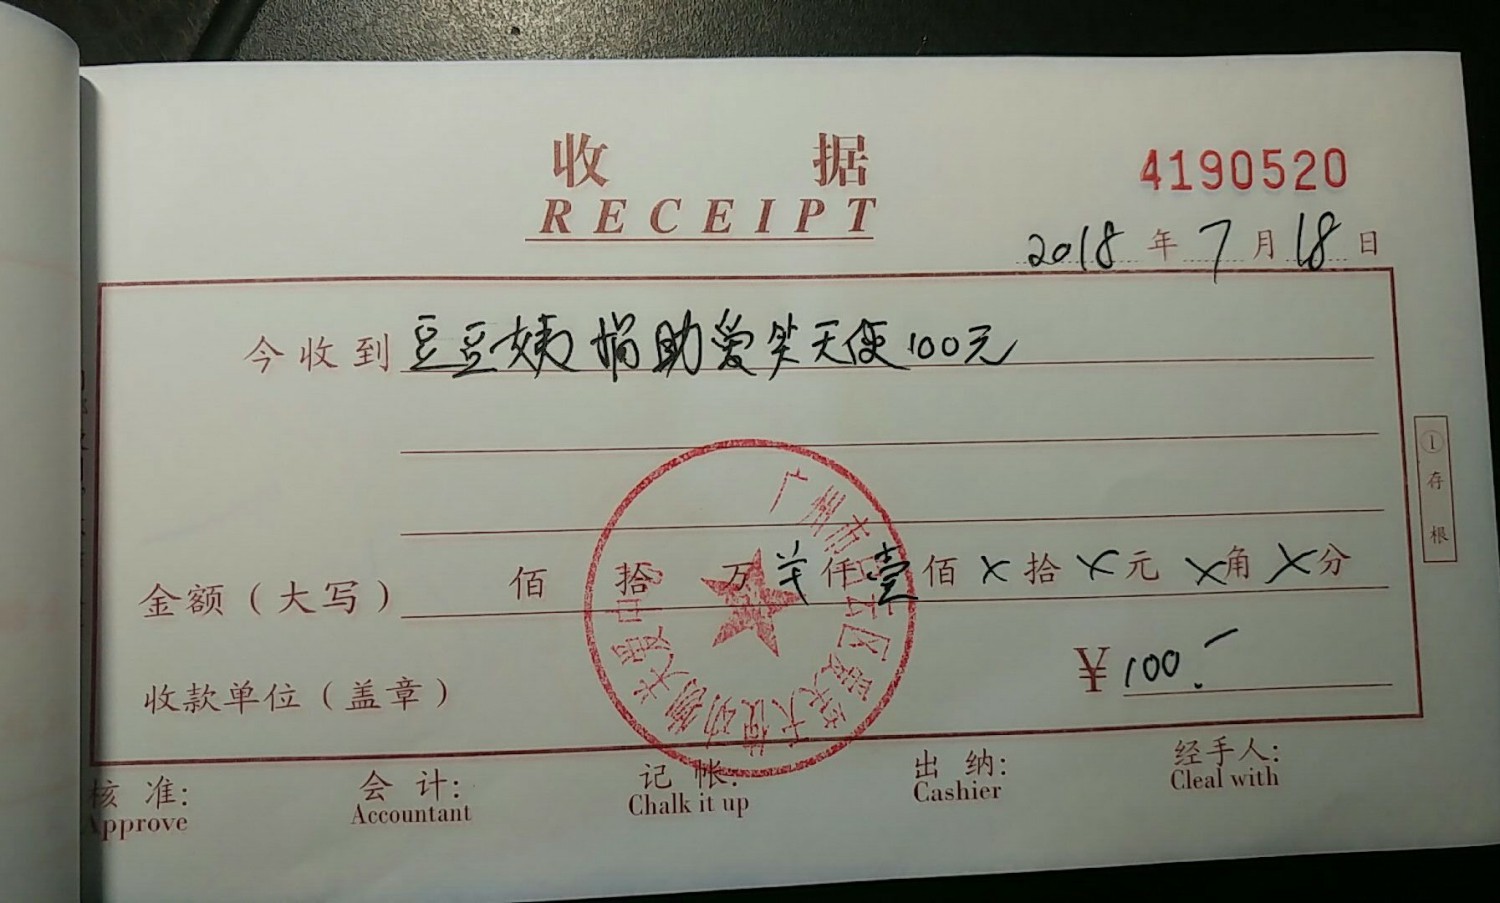 收 据
RECEIPT
4190520
2018 年 7 月 18 日
今收到 豆豆姨 捐助爱笑天使100元
金额（大写） 佰 拾 万 仟 壹 佰 X 拾 X 元 X 角 X 分
① 存根
收款单位（盖章）
¥ 100.-
核 准: 会 计: 记 帐: 出 纳: 经手人:
Approve Accountant Chalk it up Cashier Cleal with